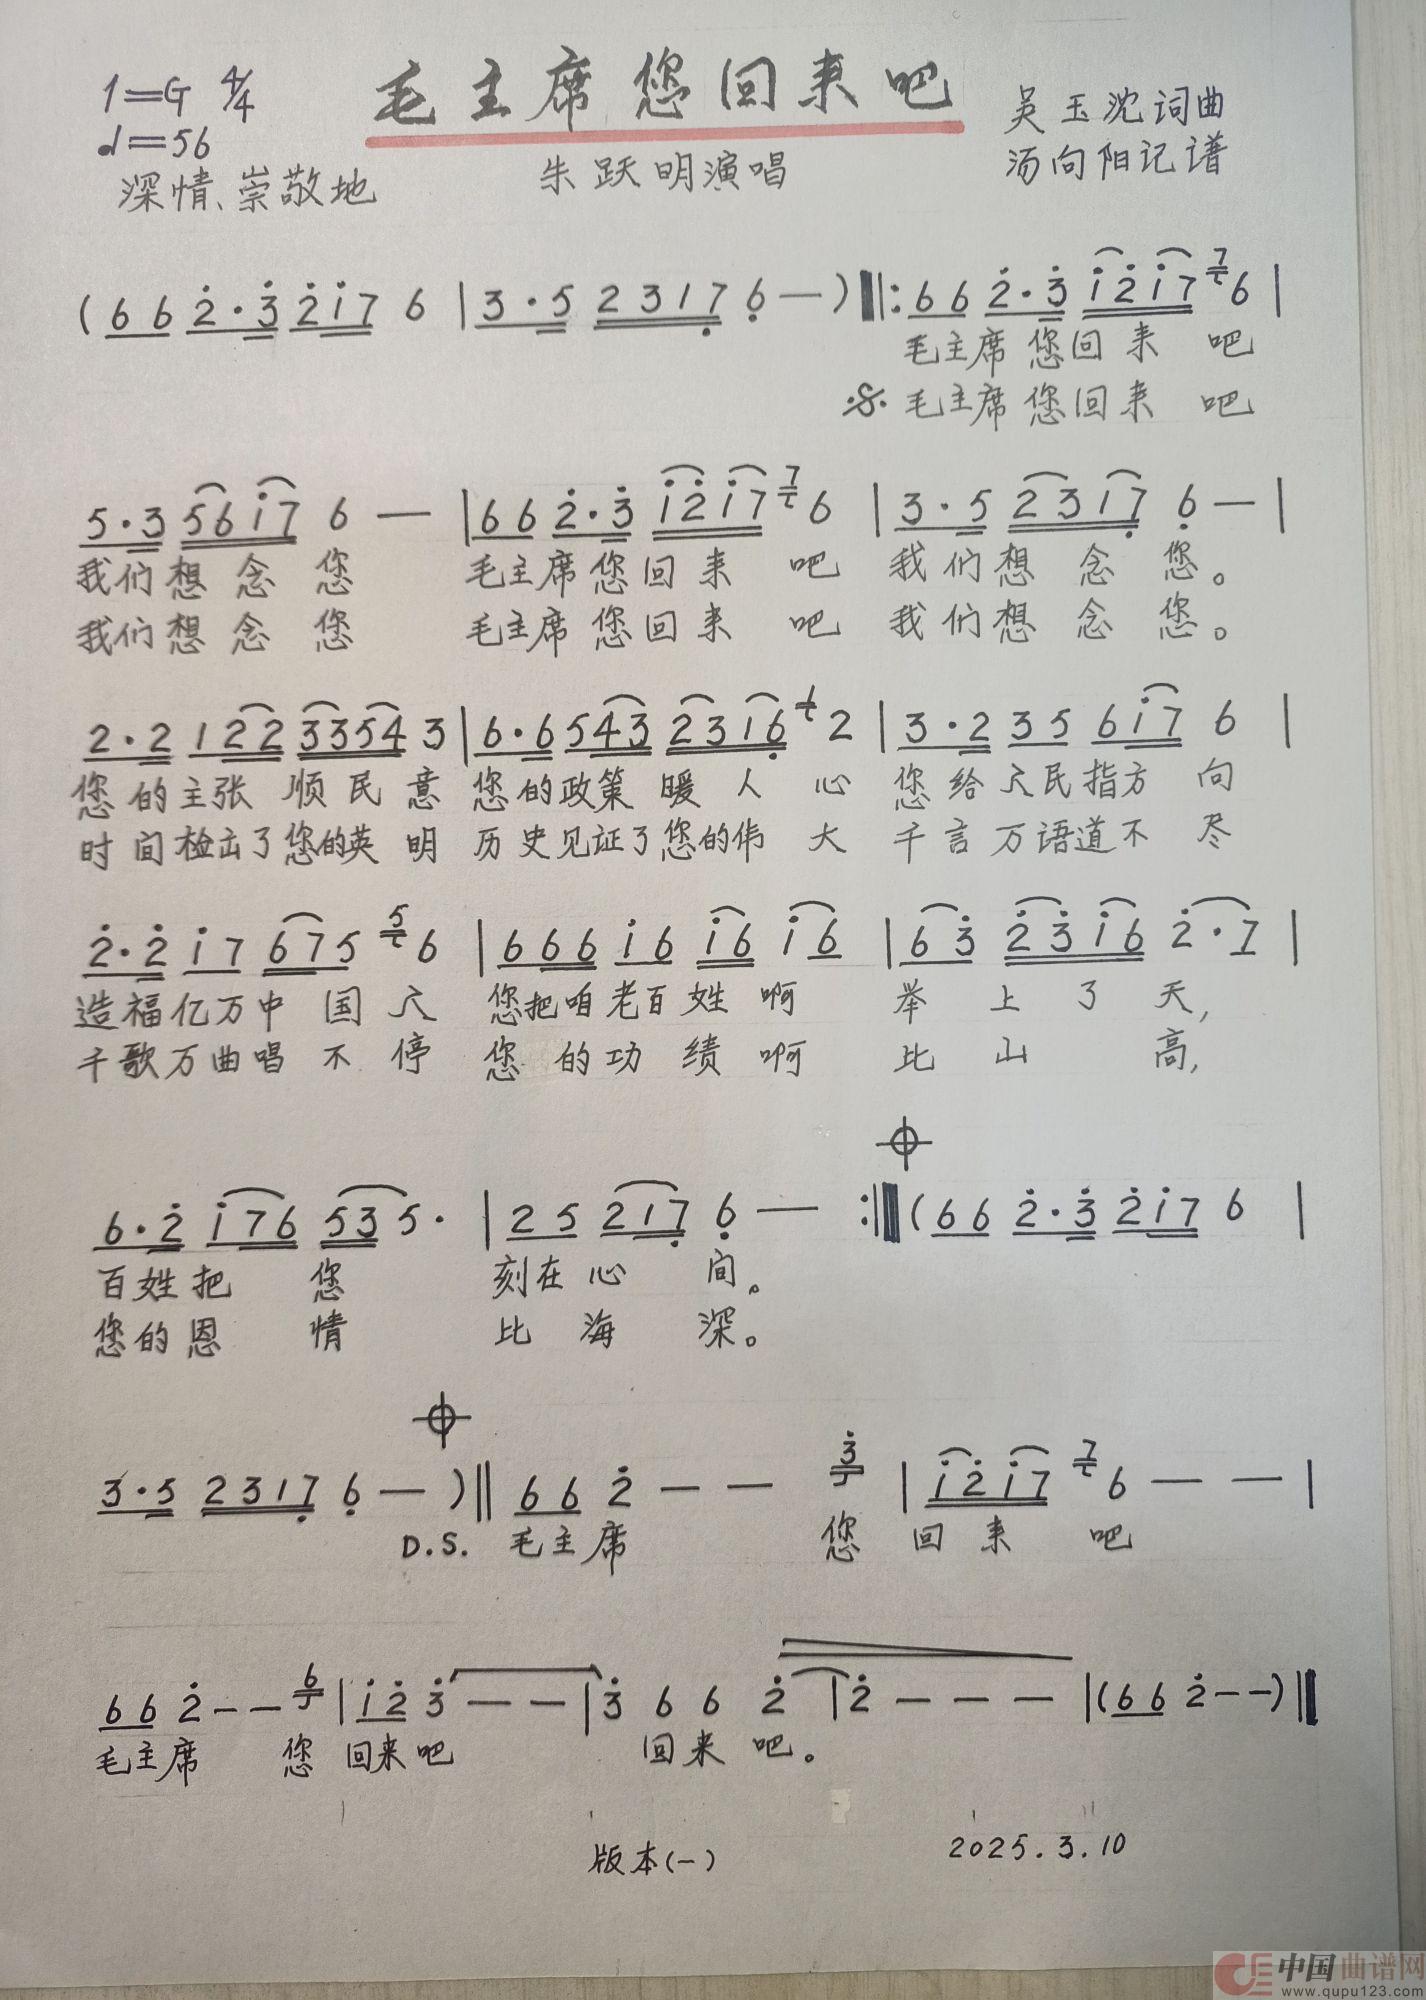 1=G 4/4
♩=56
深情、崇敬地
毛主席您回来吧
朱跃明演唱
吴玉沈词曲
汤向阳记谱
(6 6 2̇·3̇ 2̇1̇7 6 | 3·5 2 3 1 7̣ 6̣ — ) ‖: 6 6 2̇·3̇ 1̇2̇1̇7 ⁷6 |
毛主席您回来 吧
𝄋 毛主席您回来 吧
5·3 5 6 1̇ 7 6 — | 6 6 2̇·3̇ 1̇2̇1̇7 ⁷6 | 3·5 2 3 1 7̣ 6̣ — |
我们想念您 毛主席您回来 吧 我们想念您。
我们想念您 毛主席您回来 吧 我们想念您。
2·2 1 2 2 3 3 5 4 3 | 6·6 5 4 3 2 3 1 6̣ ¹2 | 3·2 3 5 6 1̇ 7 6 |
您的主张顺民意 您的政策暖人心 您给人民指方向
时间检出了您的英明 历史见证了您的伟大 千言万语道不尽
2̇·2̇ 1̇ 7 6 7 5 ⁵6 | 6 6 6 1̇ 6 1̇ 6 1̇ 6 | 6 3̇ 2̇ 3̇ 1̇ 6 2̇·7 |
造福亿万中国人 您把咱老百姓啊 举上了天,
千歌万曲唱不停 您的功绩啊 比山高,
𝄌
6·2̇ 1̇ 7 6 5 3 5· | 2 5 2 1 7̣ 6̣ — :‖ (6 6 2̇·3̇ 2̇ 1̇ 7 6 |
百姓把您 刻在心间。
您的恩情 比海深。
𝄌
3·5 2 3 1 7̣ 6̣ — ) ‖ 6 6 2̇ — — 3̇ | 1̇ 2̇ 1̇ 7 ⁷6 — — |
D.S. 毛主席 您 回来 吧
6 6 2̇ — — 6 | 1̇ 2̇ 3̇ — — | 3̇ 6 6 2̇ | 2̇ — — — | (6 6 2̇ — —) ‖
毛主席 您 回来吧 回来吧。
版本(一)
2025.3.10
中国曲谱网
www.qupu123.com